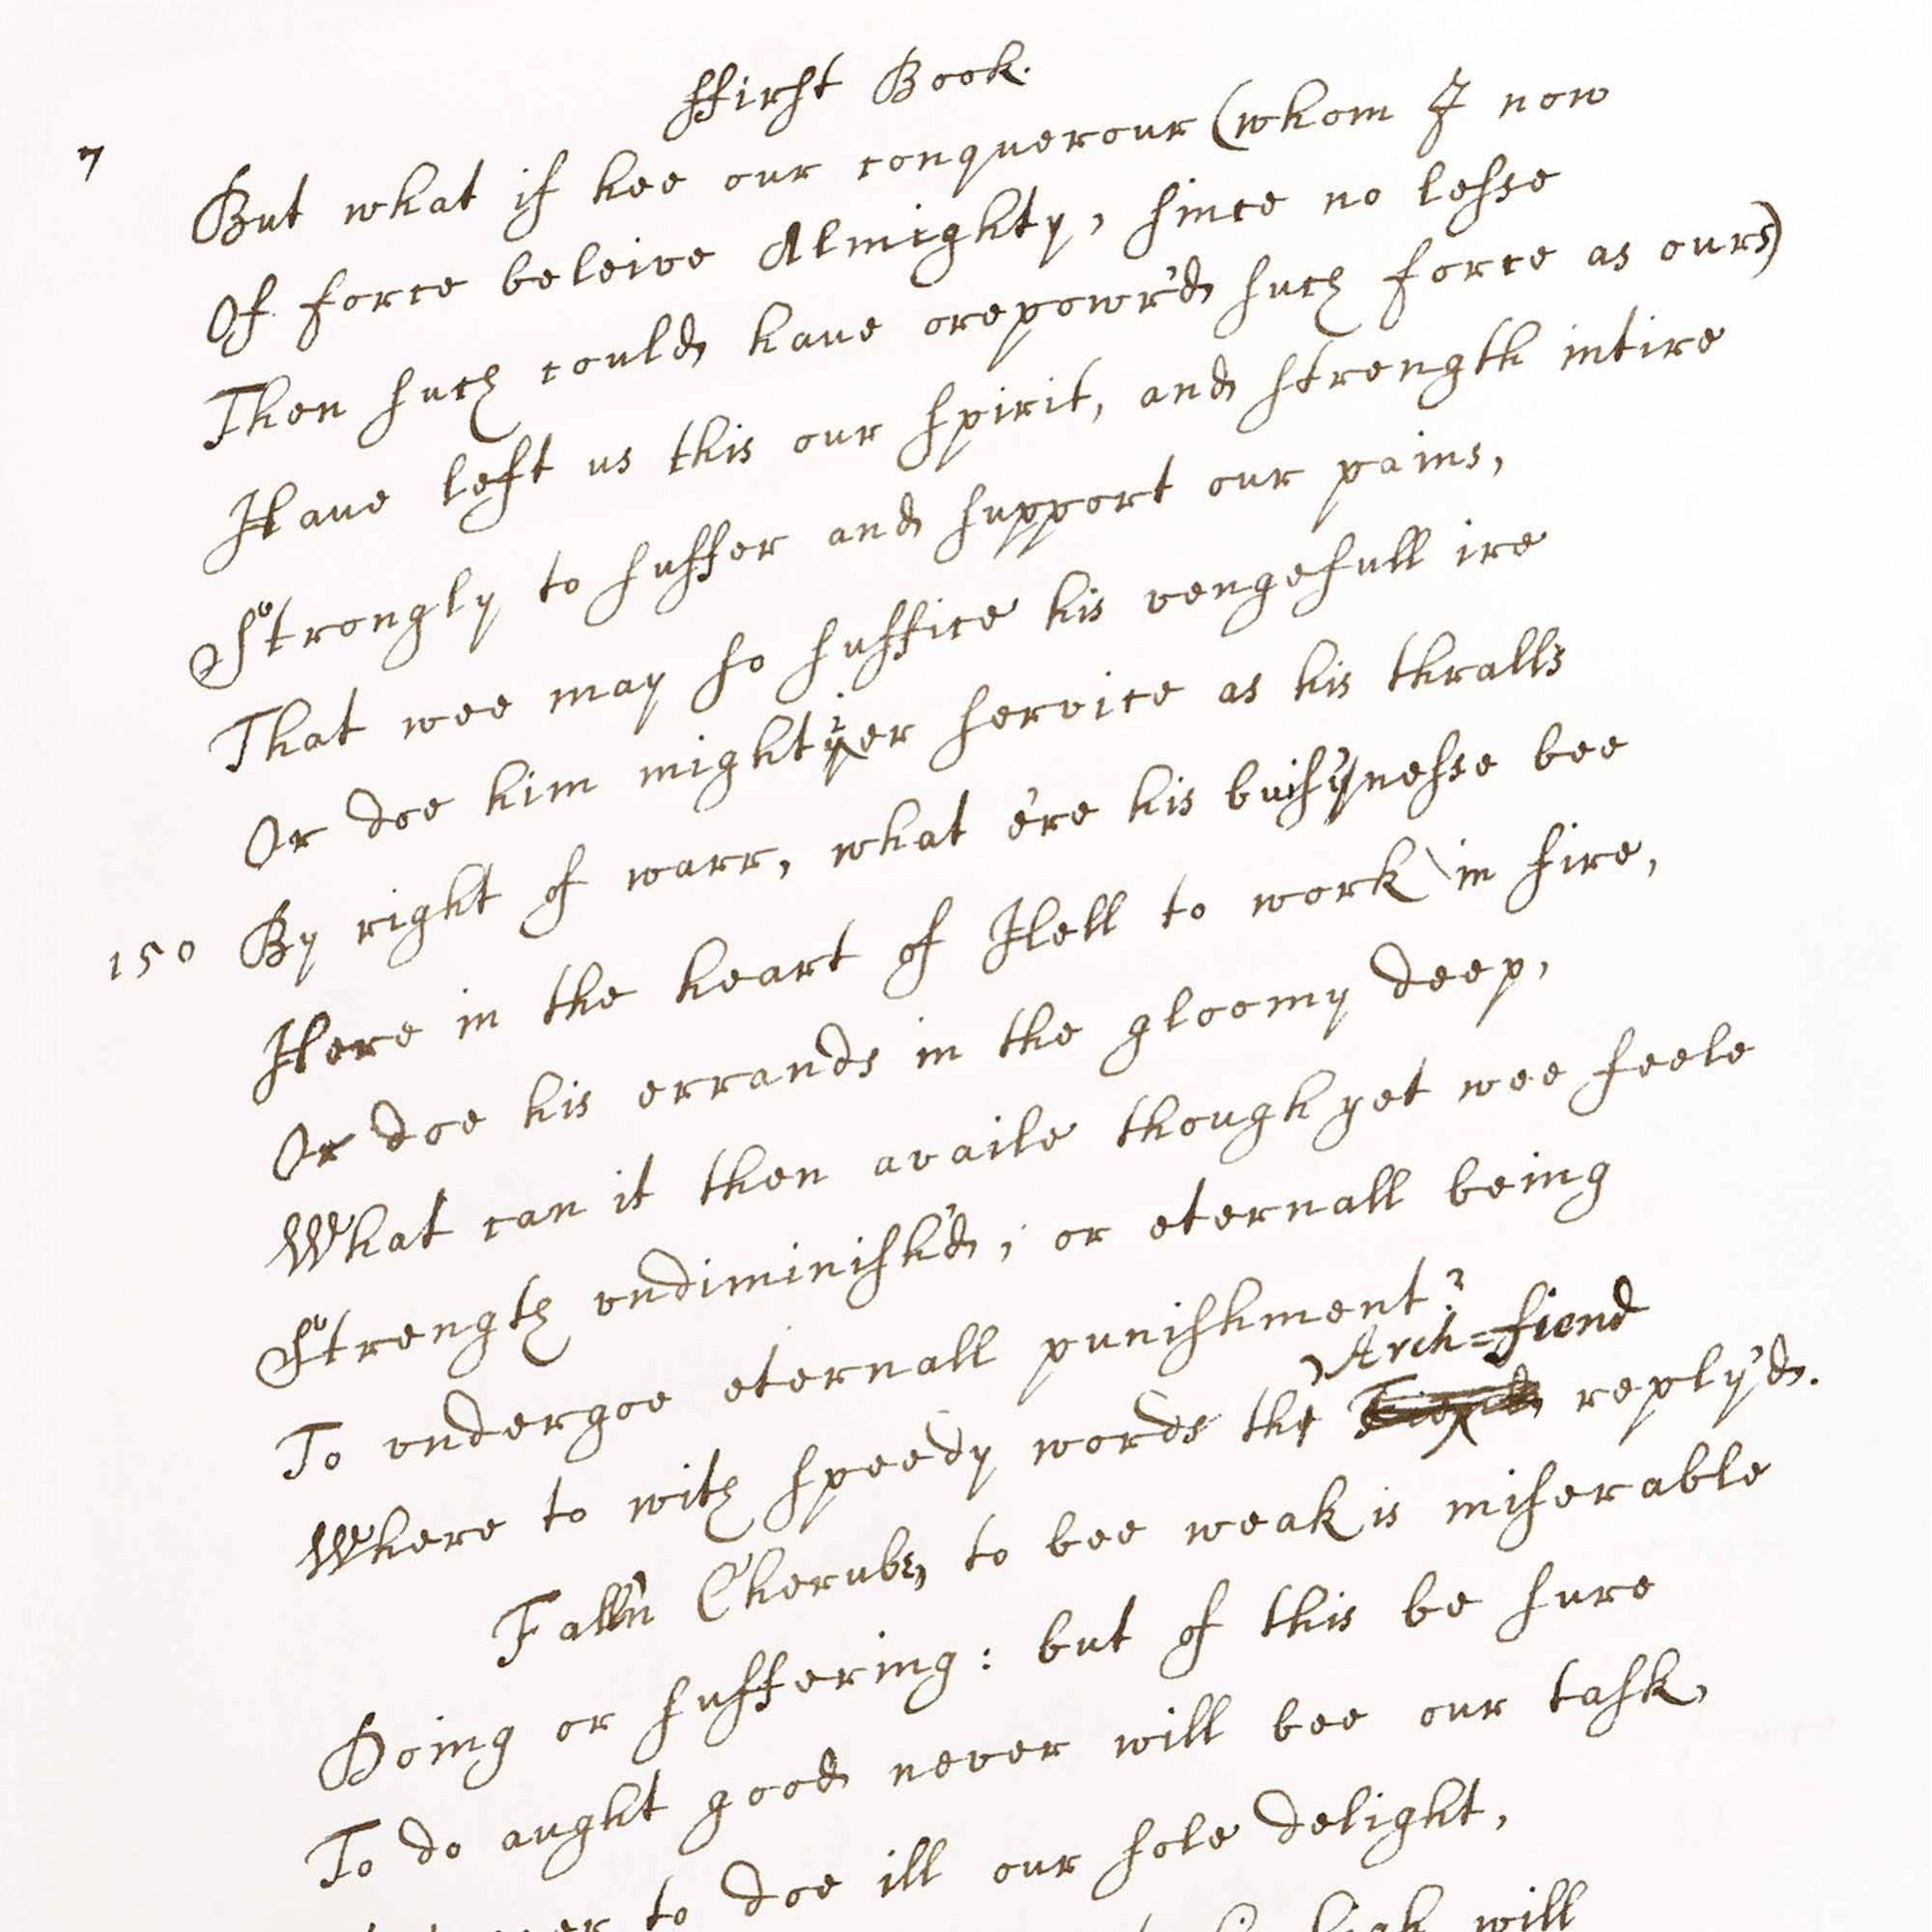 ffirst Book.
7
But what if hee our conquerour (whom I now
Of force beleive Almighty, since no lesse
Then such could have orepowr'd such force as ours)
Haue left us this our spirit, and strength intire
Strongly to suffer and support our pains,
That wee may so suffice his vengefull ire
Or doe him mightier service as his thralls
By right of warr, what e're his buisnesse bee
150
Here in the heart of Hell to work in fire,
Or doe his errands in the gloomy deep,
What can it then availe though yet wee feele
Strength vndiminish'd, or eternall being
To vndergoe eternall punishment?
Arch=fiend
Where to with speedy words the reply'd.
Fall'n Cherub, to bee weak is miserable
Doing or suffering: but of this be sure
To do aught good never will bee our task,
to doe ill our sole delight,
will